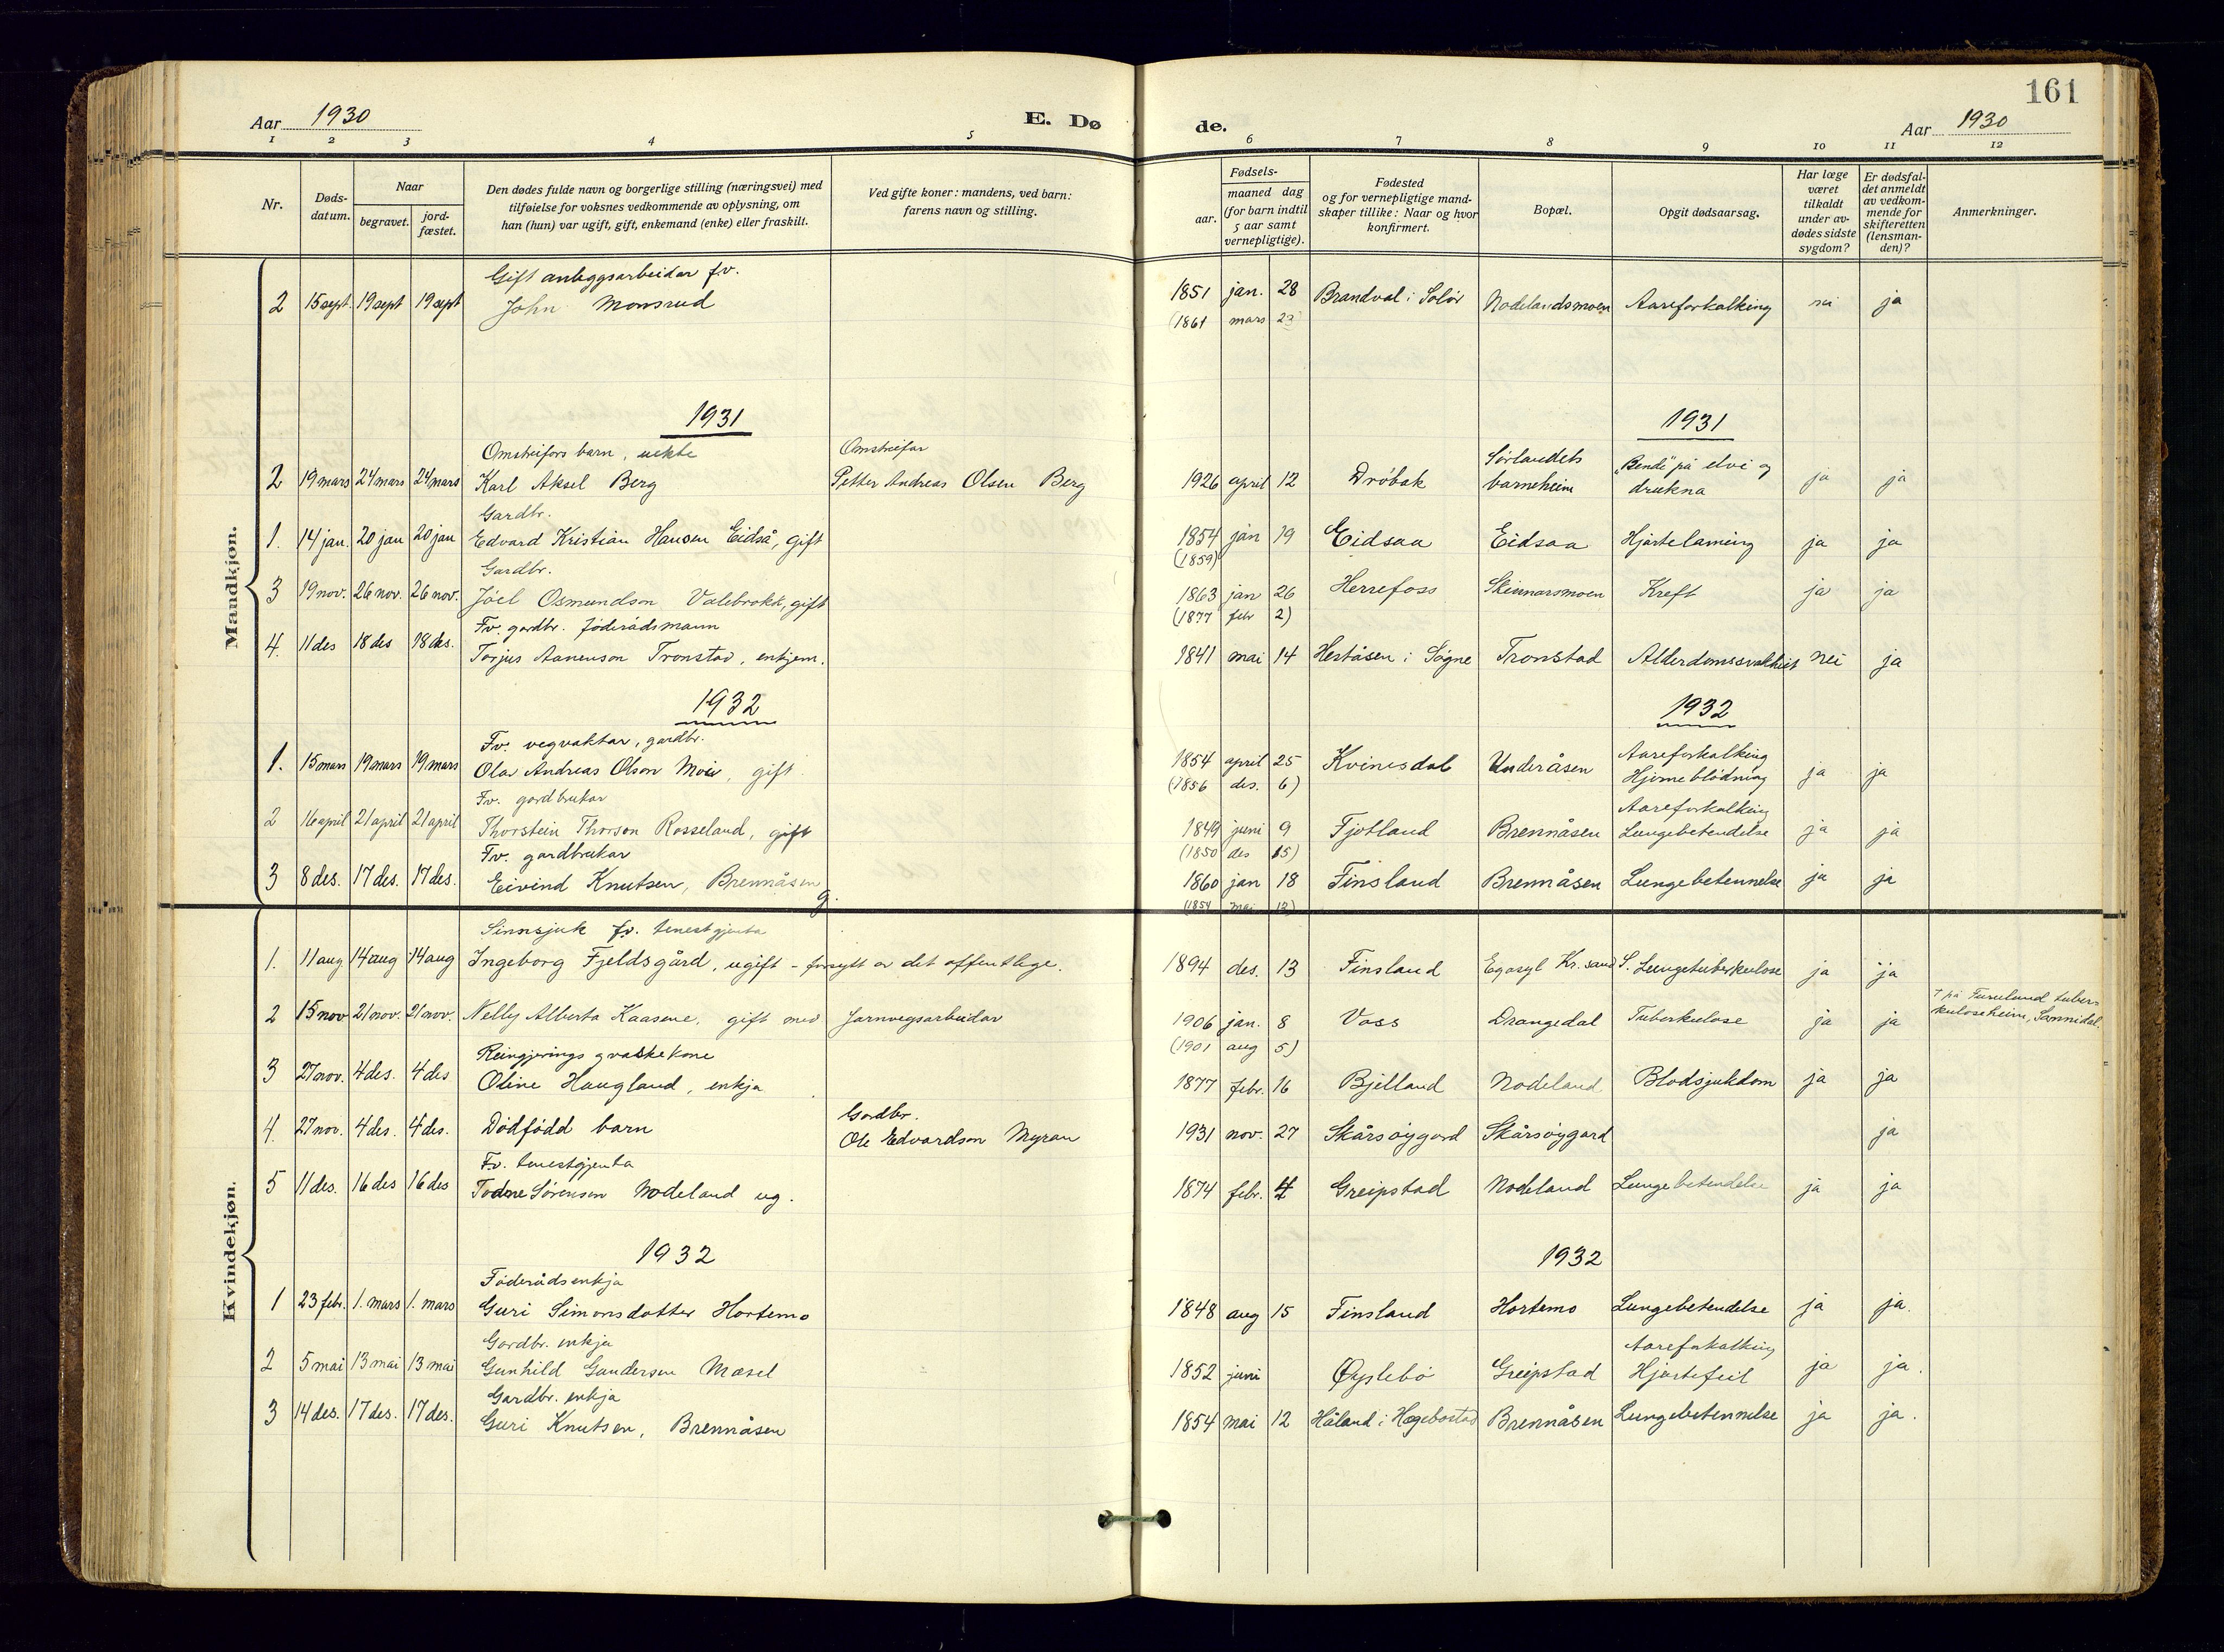 161
Aar 1930
E. Dø de.
Aar 1930
1 2 3 4 5 6 7 8 9 10 11 12
Nr.
Døds-
datum.
Naar
begravet.
jord-
fæstet.
Den dødes fulde navn og borgerlige stilling (næringsvei) med
tilføielse for voksnes vedkommende av oplysning, om
han (hun) var ugift, gift, enkemand (enke) eller fraskilt.
Ved gifte koner: mandens, ved barn:
farens navn og stilling.
Fødsels-
aar.
maaned dag
(for barn indtil
5 aar samt
vernepligtige).
Fødested
og for vernepligtige mand-
skaper tillike: Naar og hvor
konfirmert.
Bopæl.
Opgit dødsaarsag.
Har læge
været
tilkaldt
under av-
dødes sidste
sygdom?
Er dødsfal-
det anmeldt
av vedkom-
mende for
skifteretten
(lensman-
den)?
Anmerkninger.
Mandkjøn.
Gift anleggsarbeidar fv.
2 15 sept. 19 sept 19 sept John Monsrud 1851 jan. 28 Brandval i Solør Nodelandsmoen Aareforkalking nei ja
(1861 mars 23)
1931 1931
Omstreifars barn, uekte Omstreifar Sørlandets "Rende" på elvi og
2 19 mars 24 mars 24 mars Karl Aksel Berg Petter Andreas Olsen Berg 1926 april 12 Drøbak barneheim drukna ja ja
Gardbr.
1. 14 jan. 20 jan 20 jan Edvard Kristian Hansen Eidså, gift 1854 jan 19 Eidsaa Eidsaa Hjartelaming ja ja
(1859)
Gardbr.
3 19 nov. 26 nov. 26 nov. Jóel Osmundson Valebrokk, gift 1863 jan 26 Herrefoss Skinnarsmoen Kreft ja ja
(1877 febr 2)
Fv. gardbr. föderådsmann
4. 11 des 18 des 18 des. Torjus Aanenson Tronstad, enkjem. 1841 mai 14 Heståsen i Søgne Tronstad Alderdomssvakheit nei ja
1932 1932
Fv. vegvaktar, gardbr. Aareforkalking
1. 15 mars 19 mars 19 mars Olav Andreas Olson Moie, gift 1854 april 25 Kvinesdal Underåsen Hjerneblödning ja ja
(1856 des. 6)
Fv. gardbrukar Aareforkalking
2 16 april 21 april 21 april Thorstein Thorson Rosseland, gift 1849 juni 9 Fjotland Brennåsen Lungebetendelse ja ja
(1850 des 15)
Fv. gardbrukar
3 8 des. 17 des. 17 des. Eivind Knutsen, Brennåsen g. 1860 jan 18 Finsland Brennåsen Lungebetennelse ja ja
(1854 mai 12)
Kvindekjøn.
Sinnsjuk fv. tenestgjenta
1. 11 aug 14 aug 14 aug Ingeborg Fjeldsgård, ugift - forsytt av det offentlege. 1894 des. 13 Finsland Egasyl Kr.sand S. Lungetuberkulose ja ja
2 15 nov 21 nov. 21 nov. Nelly Alberta Kaasene, gift med Jarnvegsarbeidar 1906 jan. 8 Voss Drangedal Tuberkulose ja ja † på Furulund tuber-
kuloseheim, Sannidal.
(1901 aug 5)
Reingjerings g vaskekone
3 27 nov. 4 des. 4 des Oline Haugland, enkja 1877 febr. 16 Bjelland Nodeland Blodsjukdom ja ja
Gardbr.
4. 27 nov. 4 des. 4 des. Dödfödd barn Ole Edvardson Myran 1931 nov. 27 Skårsøygard Skårsøygard ja
Fv. tenestgjenta
5 11 des. 16 des 16 des Todne Sørensen Nodeland ug. 1874 febr. 4 Greipstad Nodeland Lungebetendelse ja ja
1932 1932
Föderådsenkja
1 23 febr. 1. mars 1. mars Guri Simonsdatter Hortemo 1848 aug 15 Finsland Hortemo Lungebetendelse ja ja.
Gardbr. enkja Aareforkalking
2 5 mai 13 mai 13 mai Gunhild Gundersen Mosel 1852 juni Øyslebö Greipstad Hjartefeil ja ja.
Gardbr. enkja
3 14 des. 17 des. 17 des. Guri Knutsen, Brennåsen 1854 mai 12 Håland i Hægebostad Brennåsen Lungebetennelse ja ja.